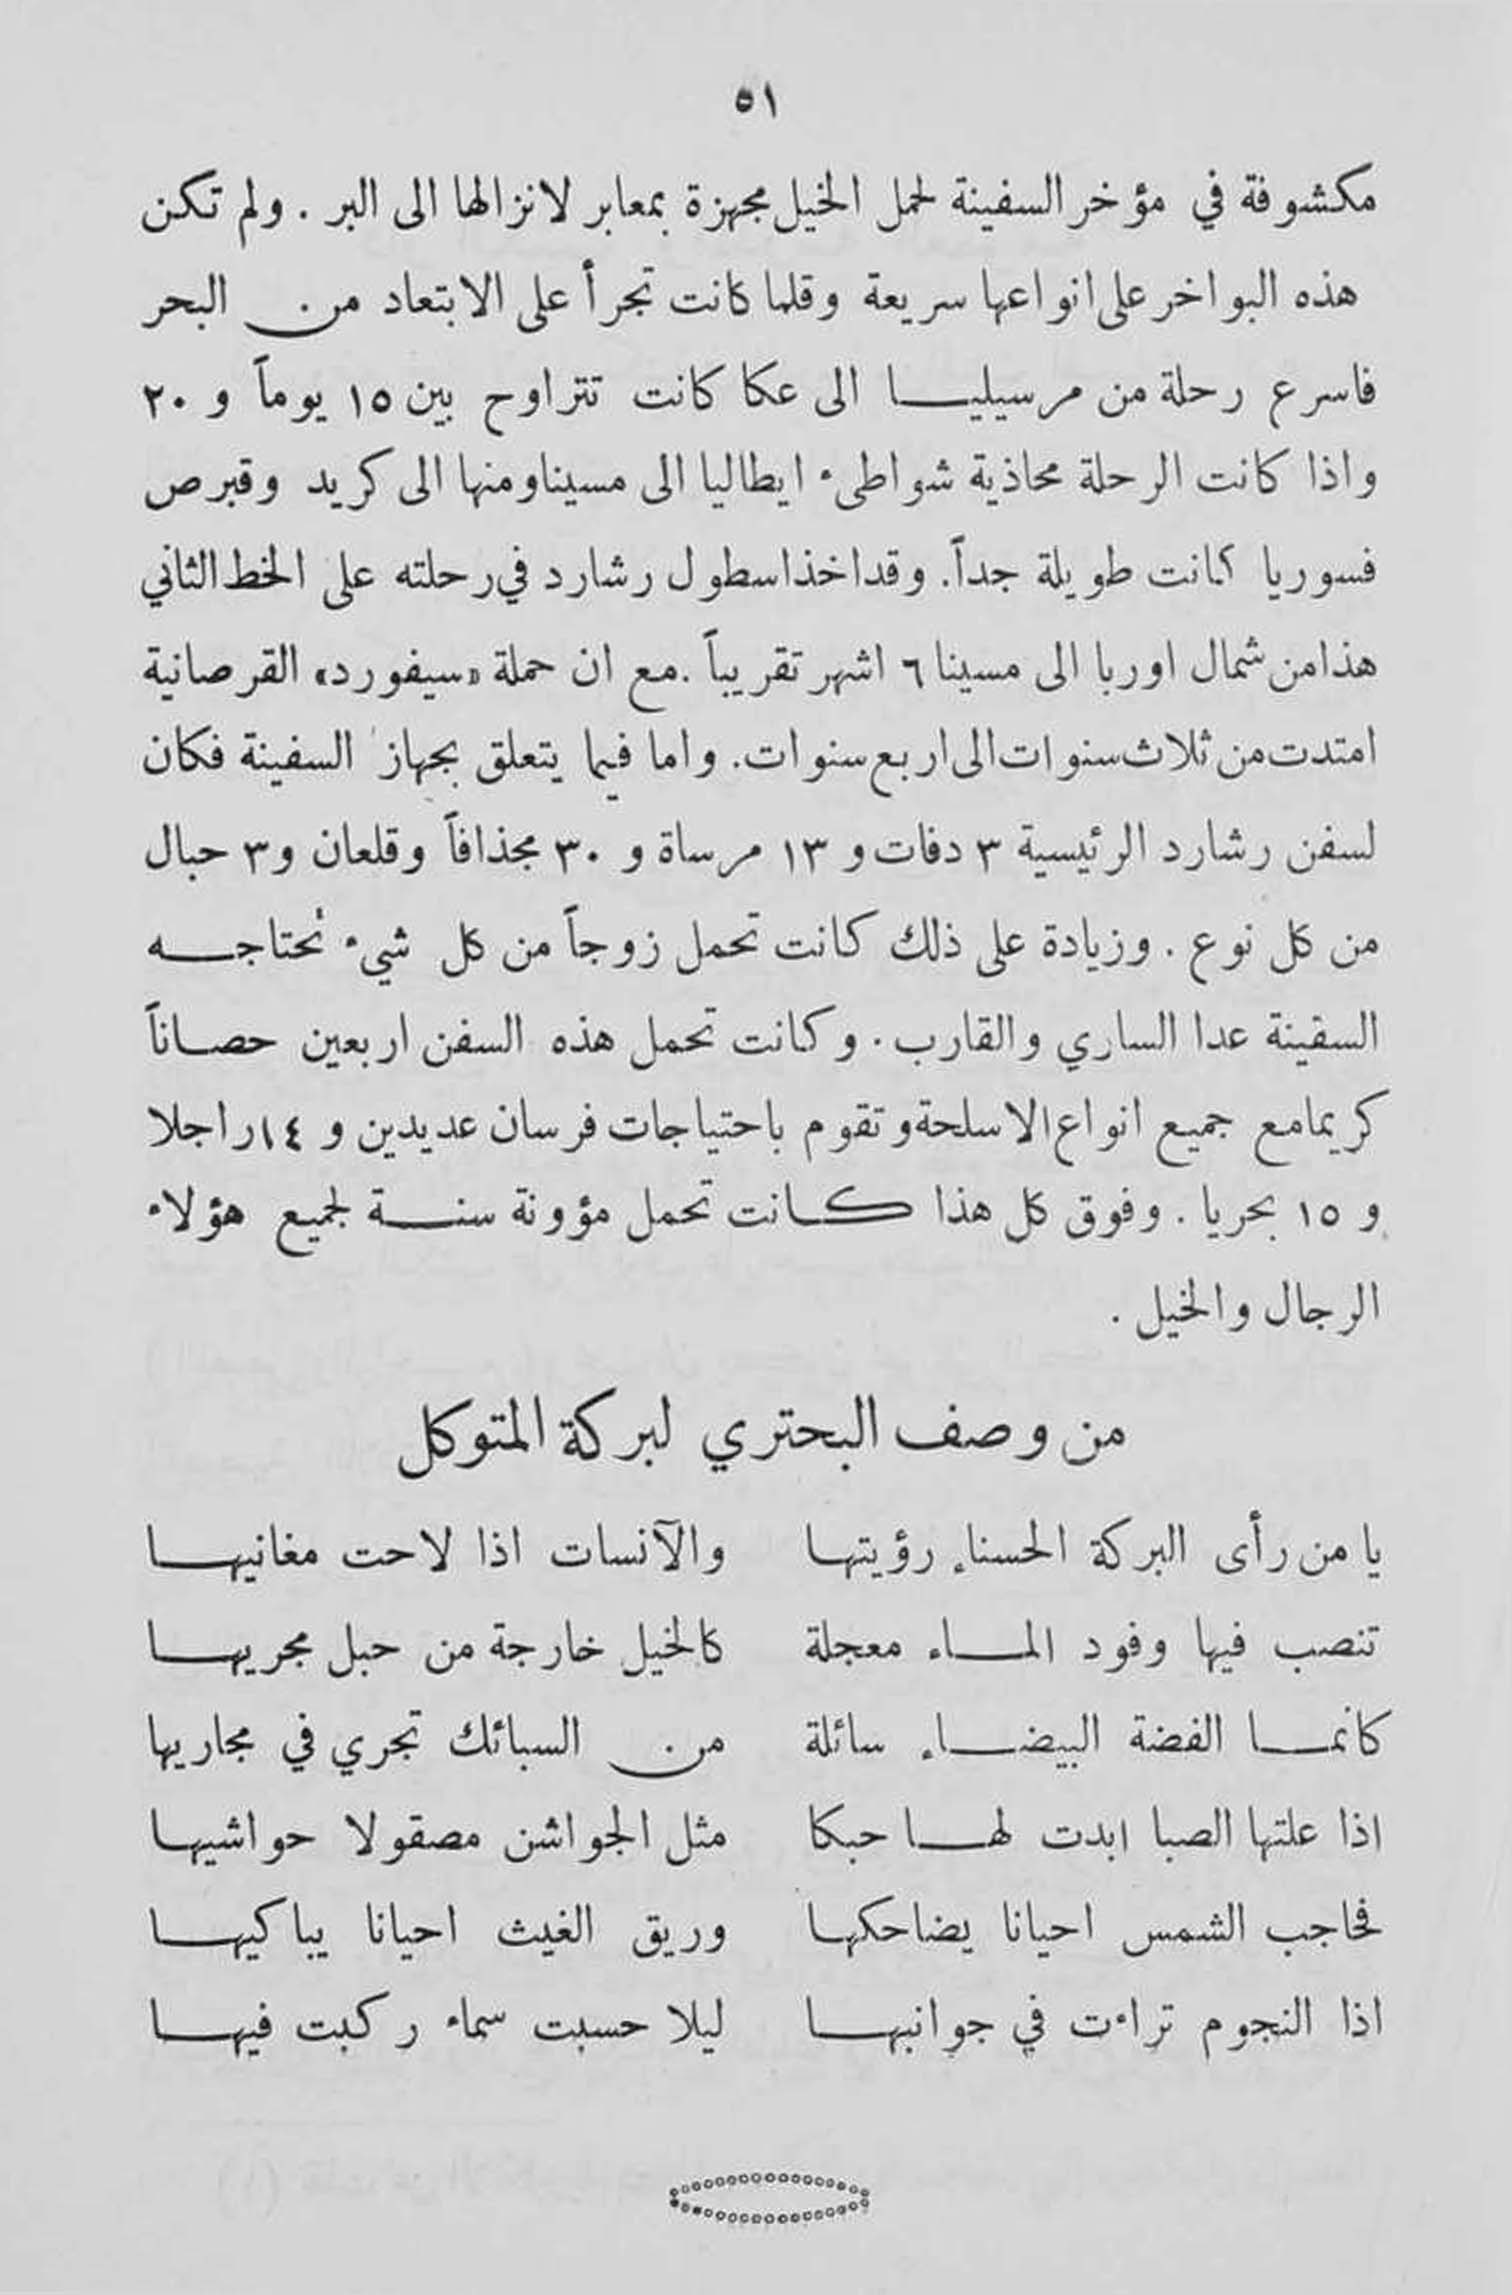 ٥١
مكشوفة في مؤخر السفينة لحمل الخيل مجهزة بمعابر لانزالها الى البر . ولم تكن
هذه البواخر على انواعها سريعة وقلما كانت تجرأ على الابتعاد من البحر
فاسرع رحلة من مرسيليا الى عكا كانت تتراوح بين ١٥ يوماً و ٢٠
واذا كانت الرحلة محاذية شواطىء ايطاليا الى مسينا ومنها الى كريد وقبرص
فسوريا كانت طويلة جداً. وقد اخذ اسطول رشارد في رحلته على الخط الثاني
هذا من شمال اوربا الى مسينا ٦ اشهر تقريباً . مع ان حملة «سيفورد» القرصانية
امتدت من ثلاث سنوات الى اربع سنوات. واما فيما يتعلق بجهاز السفينة فكان
لسفن رشارد الرئيسية ٣ دفات و ١٣ مرساة و ٣٠ مجذافاً وقلعان و٣ حبال
من كل نوع . وزيادة على ذلك كانت تحمل زوجاً من كل شيء تحتاجه
السفينة عدا الساري والقارب . وكانت تحمل هذه السفن اربعين حصاناً
كريما مع جميع انواع الاسلحة وتقوم باحتياجات فرسان عديدين و ١٤ راجلا
و ١٥ بحريا . وفوق كل هذا كانت تحمل مؤونة سنة لجميع هؤلاء
الرجال والخيل .
من وصف البحتري لبركة المتوكل
يا من رأى البركة الحسناء رؤيتها والآنسات اذا لاحت مغانيها
تنصب فيها وفود الماء معجلة كالخيل خارجة من حبل مجريها
كانما الفضة البيضاء سائلة من السبائك تجري في مجاريها
اذا علتها الصبا ابدت لها حبكا مثل الجواشن مصقولا حواشيها
فحاجب الشمس احيانا يضاحكها وريق الغيث احيانا يباكيها
اذا النجوم تراءت في جوانبها ليلا حسبت سماء ركبت فيها